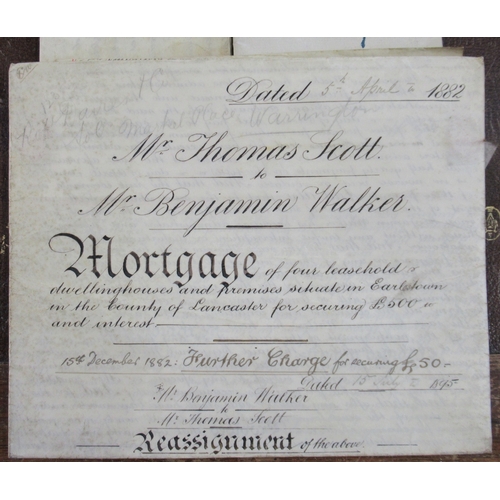 Dated 5th April 1882
Warrington
Mr. Thomas Scott.
to
Mr. Benjamin Walker.
Mortgage of four leasehold
dwellinghouses and premises situate in Earlestown
in the County of Lancaster for securing £500
and interest
15th December 1882: Further Charge for securing £50
Dated 15 July 1895
Mr. Benjamin Walker
to
Mr. Thomas Scott
Reassignment of the above.